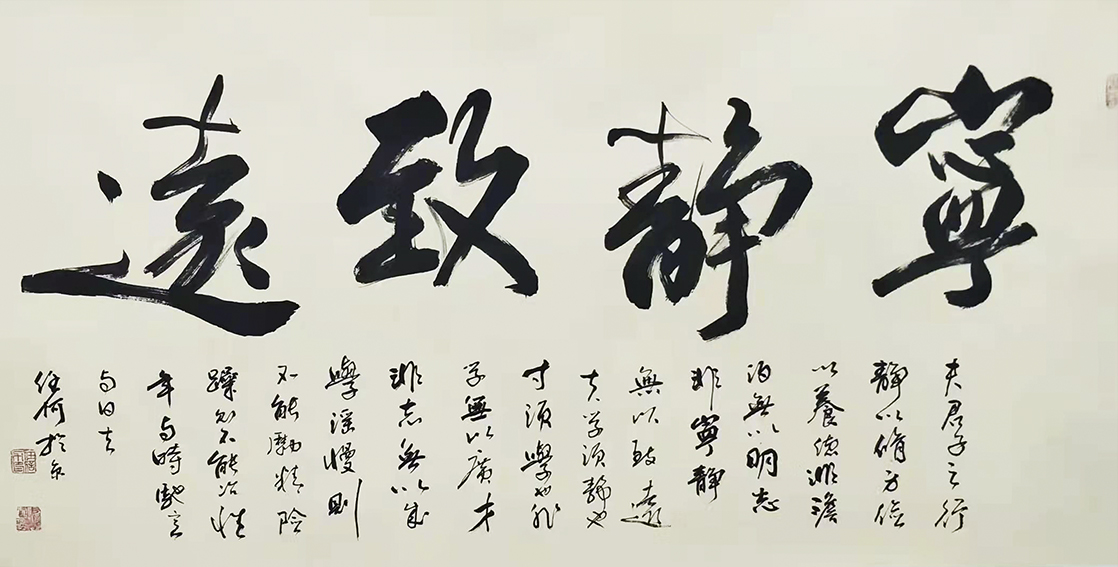 寧靜致遠
夫君子之行
靜以脩身儉
以養德非澹
泊無以明志
非寧靜
無以致遠
夫学須靜也
才須學也非
学無以廣才
非志無以成
學淫慢則
不能勵精險
躁則不能冶性
年与時馳意
与日去
任何於京